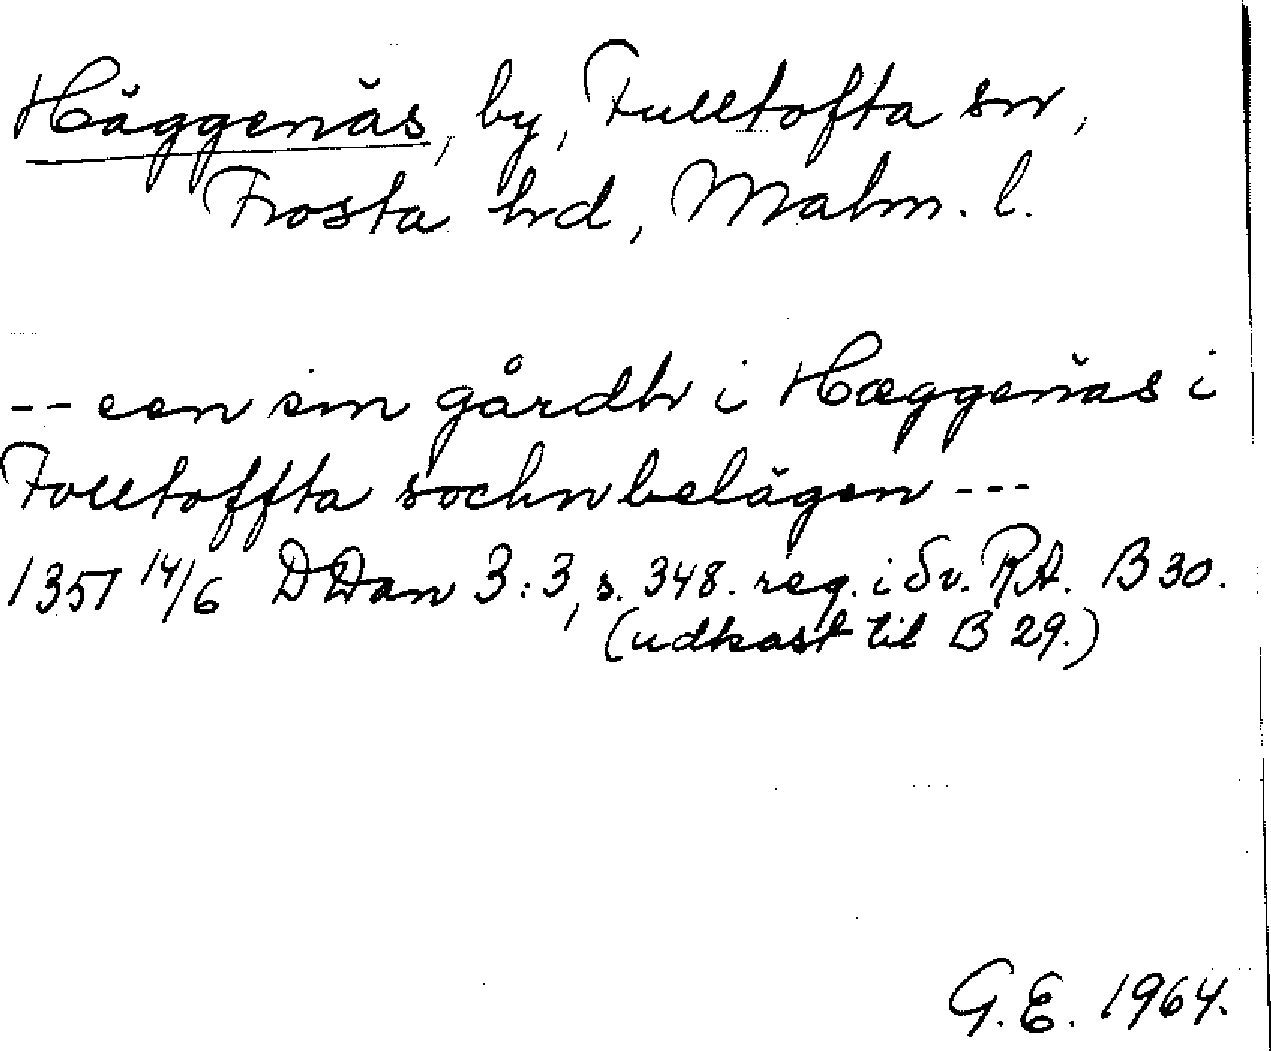 Häggenäs, by, Fulltofta sn,
Frosta hd, Malm. l.
-- een sin gårdh i Hæggenäs i
Folltoffta sochn belägen ---
1351 14/6 DDan 3:3, s. 348. reg. i Sv. RA. B 30.
(udkast til B 29.)
G.E. 1964.